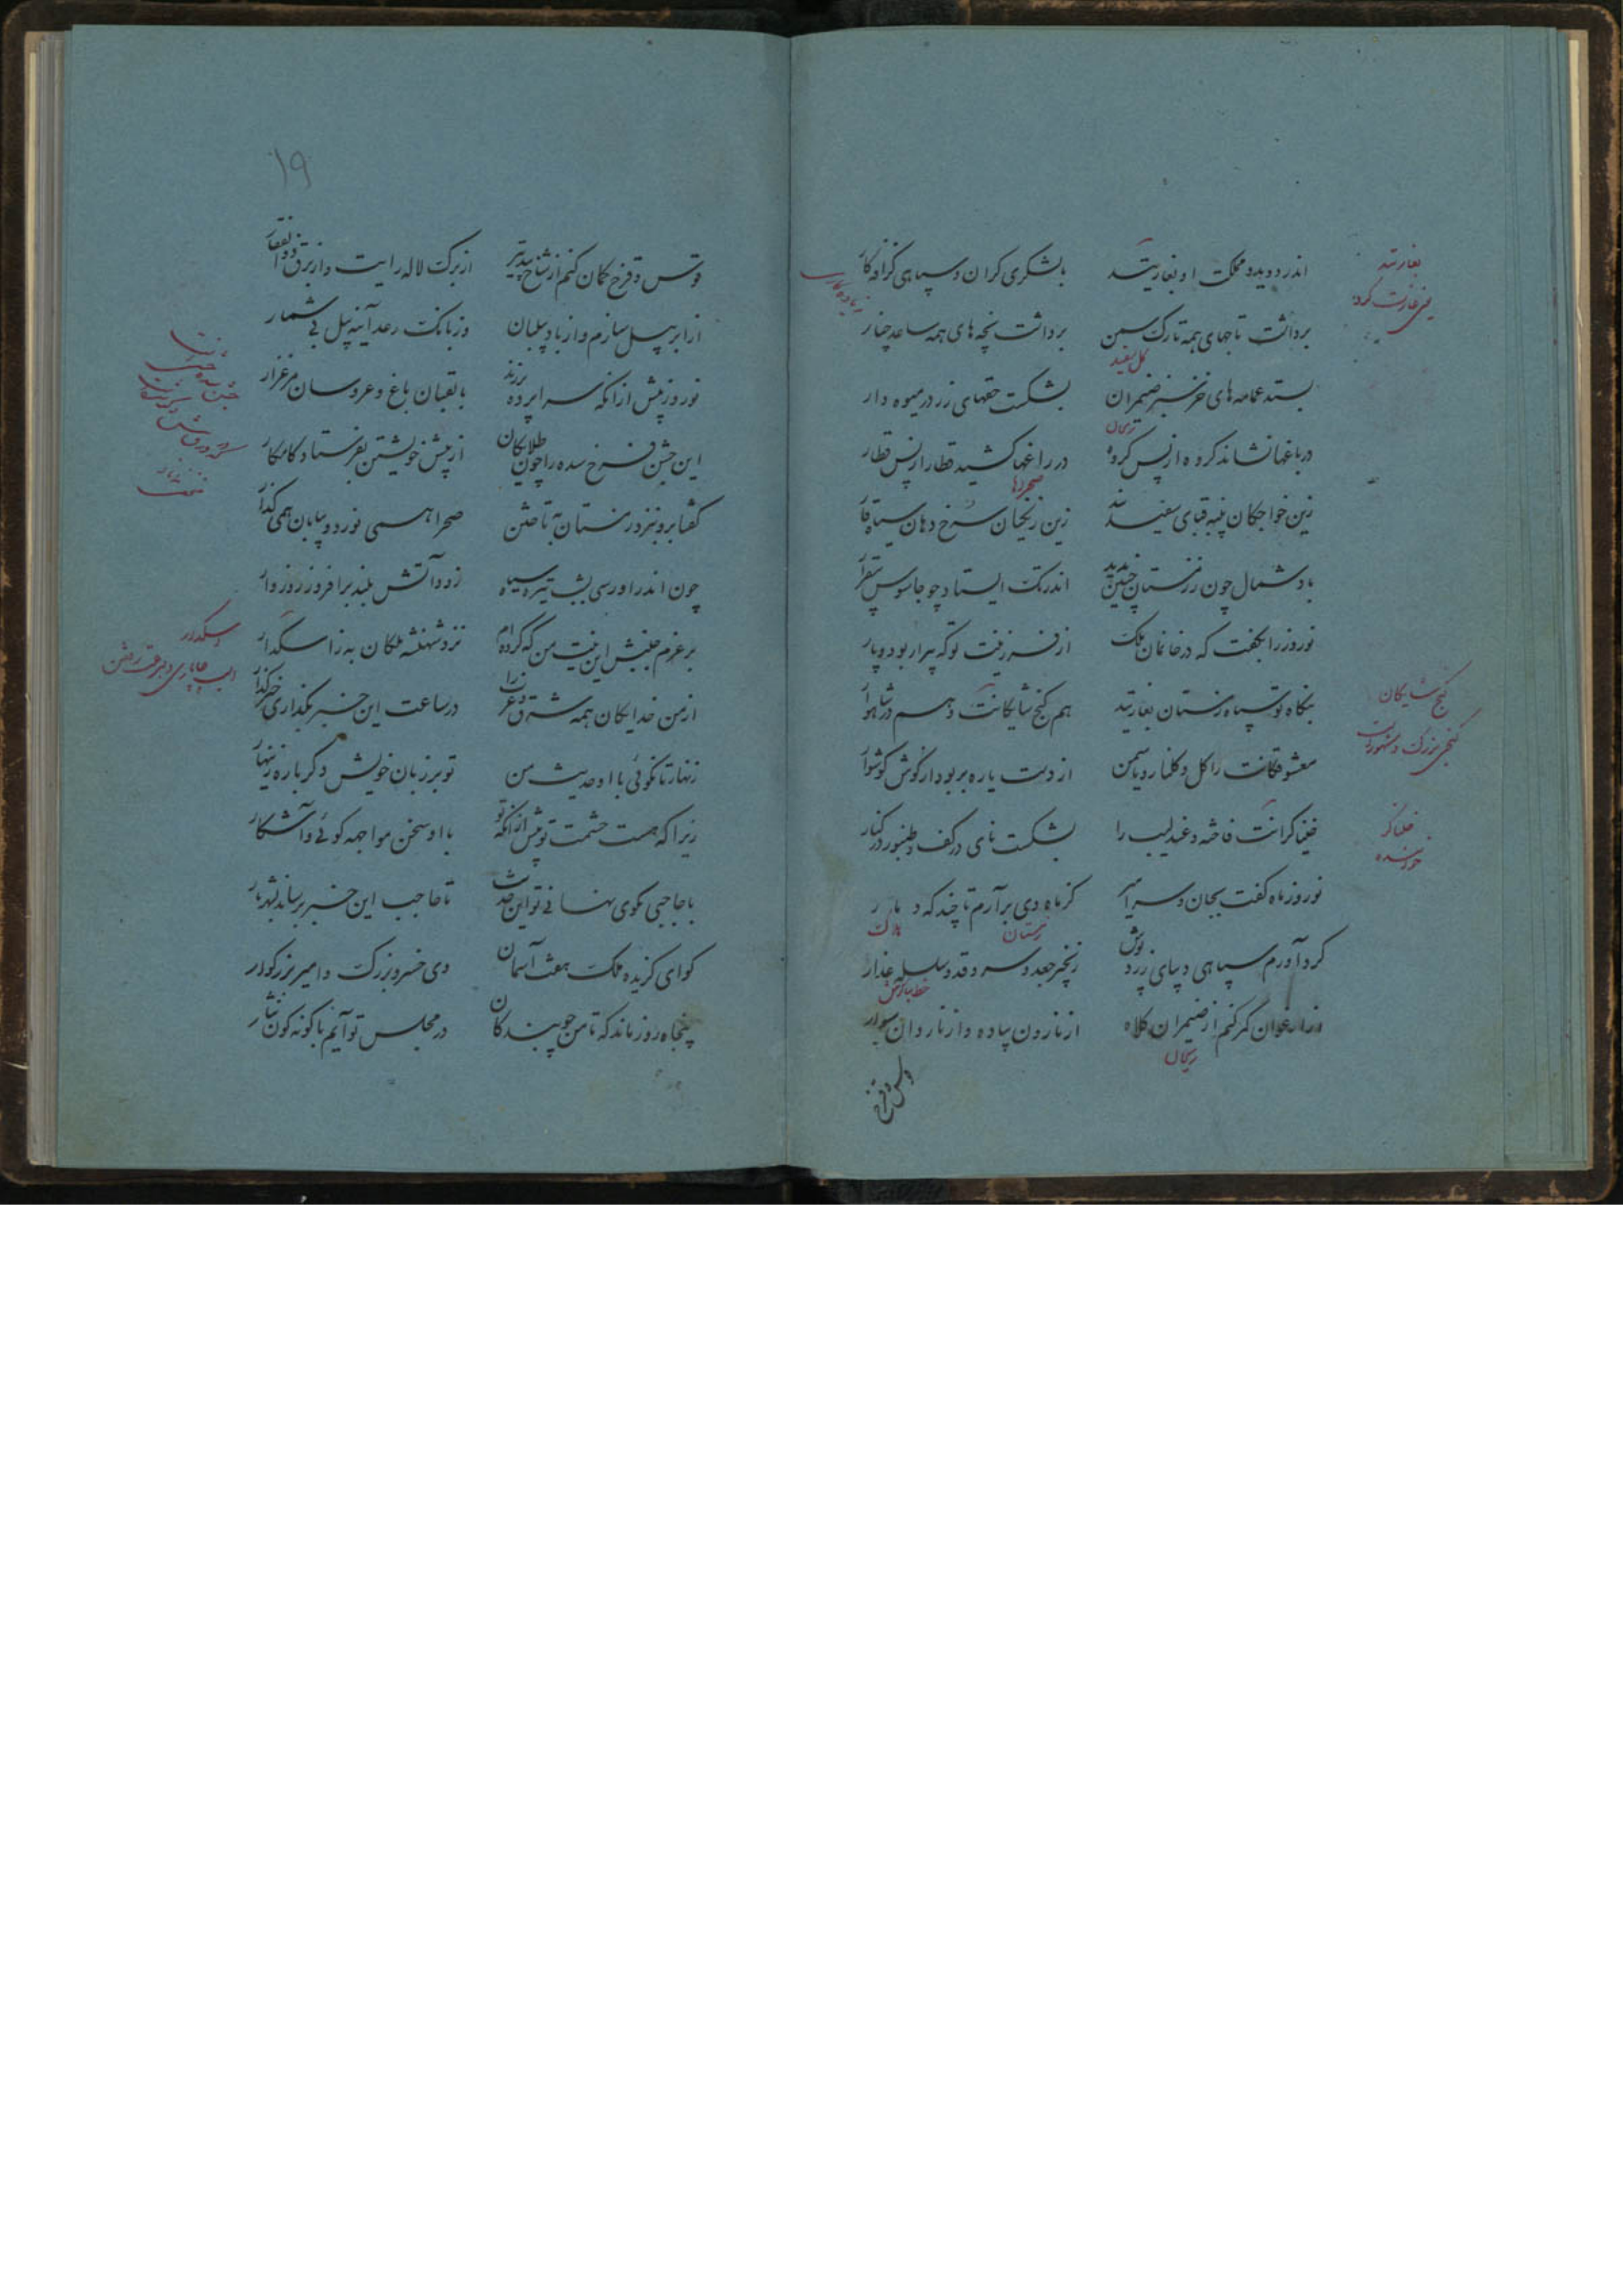 اندر دوید و مملکت او بغارتید
با لشکری گران و سپاهی گزافه‌کار
برداشت تاجهای همه تارک سمن
برداشت پنجه‌های همه ساعد چنار
بستد عمامه‌های خز سبز ضیمران
بشکست حقهای زر در میوه دار
در باغها نشاند گروه از پس گروه
در راغها کشید قطار از پس قطار
زین خواجگان پنبه قبای سفید بند
زین زنگیان سرخ دهان سیاه قار
باد شمال چون ز زمستان چنین بدید
اندر تک ایستاد چو جاسوس بیقرار
نوروز را بگفت که در خانمان ملک
از فر و زینت تو که پیرار بود و پار
بنگاه تو سپاه زمستان بغارتید
هم گنج شایگانت و هم در شاهوار
معشوقگانت را گل و گلنار و یاسمن
از دست یاره بربود از گوش گوشوار
خنیاگرانت فاخته و عندلیب را
بشکست نای در کف و طنبور در کنار
نوروز ماه گفت بجان و سر امیر
کز ماه دی برآرم تا چند که دمار
گرد آورم سپاهی دیبای زرد پوش
زنجیر جعد و سرو قد و سلسله عذار
از ارغوان کمر کنم از ضیمران کلاه
از نارون پیاده و از ناردان سوار
قوس و قزح
بغارتید
یعنی غارت کرد
گل سفید
ریحان
صحراها
گنج شایگان
گنجی بزرگ و مشهور است
خنیاگر
خواننده
زمستان
هلاک
ریحان
۱۹
قوس و قزح کمان کنم از شاخ بید تیر
از برگ لاله رایت و از برق ذوالفقار
از ابر پیل سازم و از باد پیلبان
وز بانگ رعد آینه پیل بی شمار
نوروز پیش از آنکه سراپرده برزند
با لعبتان باغ و عروسان مرغزار
این جشن فرخ سده را چون طلایگان
از پیش خویشتن بفرستاد کامکار
گفتا برو بنزد زمستان به تاختن
صحرا همی نورد و بیابان همی گذار
چون اندر او رسی بشب تیره سیاه
زود آتش بلند برافروز روزوار
بر عزم جنبش این نیت من که کرده‌ام
نزد شهنشه ملکان به زاسگدار
از من خدایگان همه شرق و غرب را
در ساعت این خبر بگذاری خبر گذار
زنهار تا نگوئی با او حدیث من
تو بر زبان خویش دگر باره زینهار
زیرا که هست حشمت تو پیش از آنکه تو
با او سخن مواجهه گوئی و آشکار
با حاجبی بگوی نهانی تو این حدیث
تا حاجب این خبر برساند بشهریار
گو ای گزیده ملک هفت آسمان
وی خسرو بزرگ و امیر بزرگوار
پنجاه روز ماند که تا من چو بندگان
در مجلس تو آیم با گونه گون نثار
اسکدار